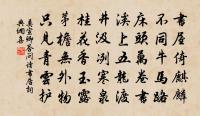 書屋倚麒麟
不同牛馬路
床頭萬卷書
溪上五龍渡
井汲冽寒泉
桂花香玉露
茅檐無外物
只見青雲護